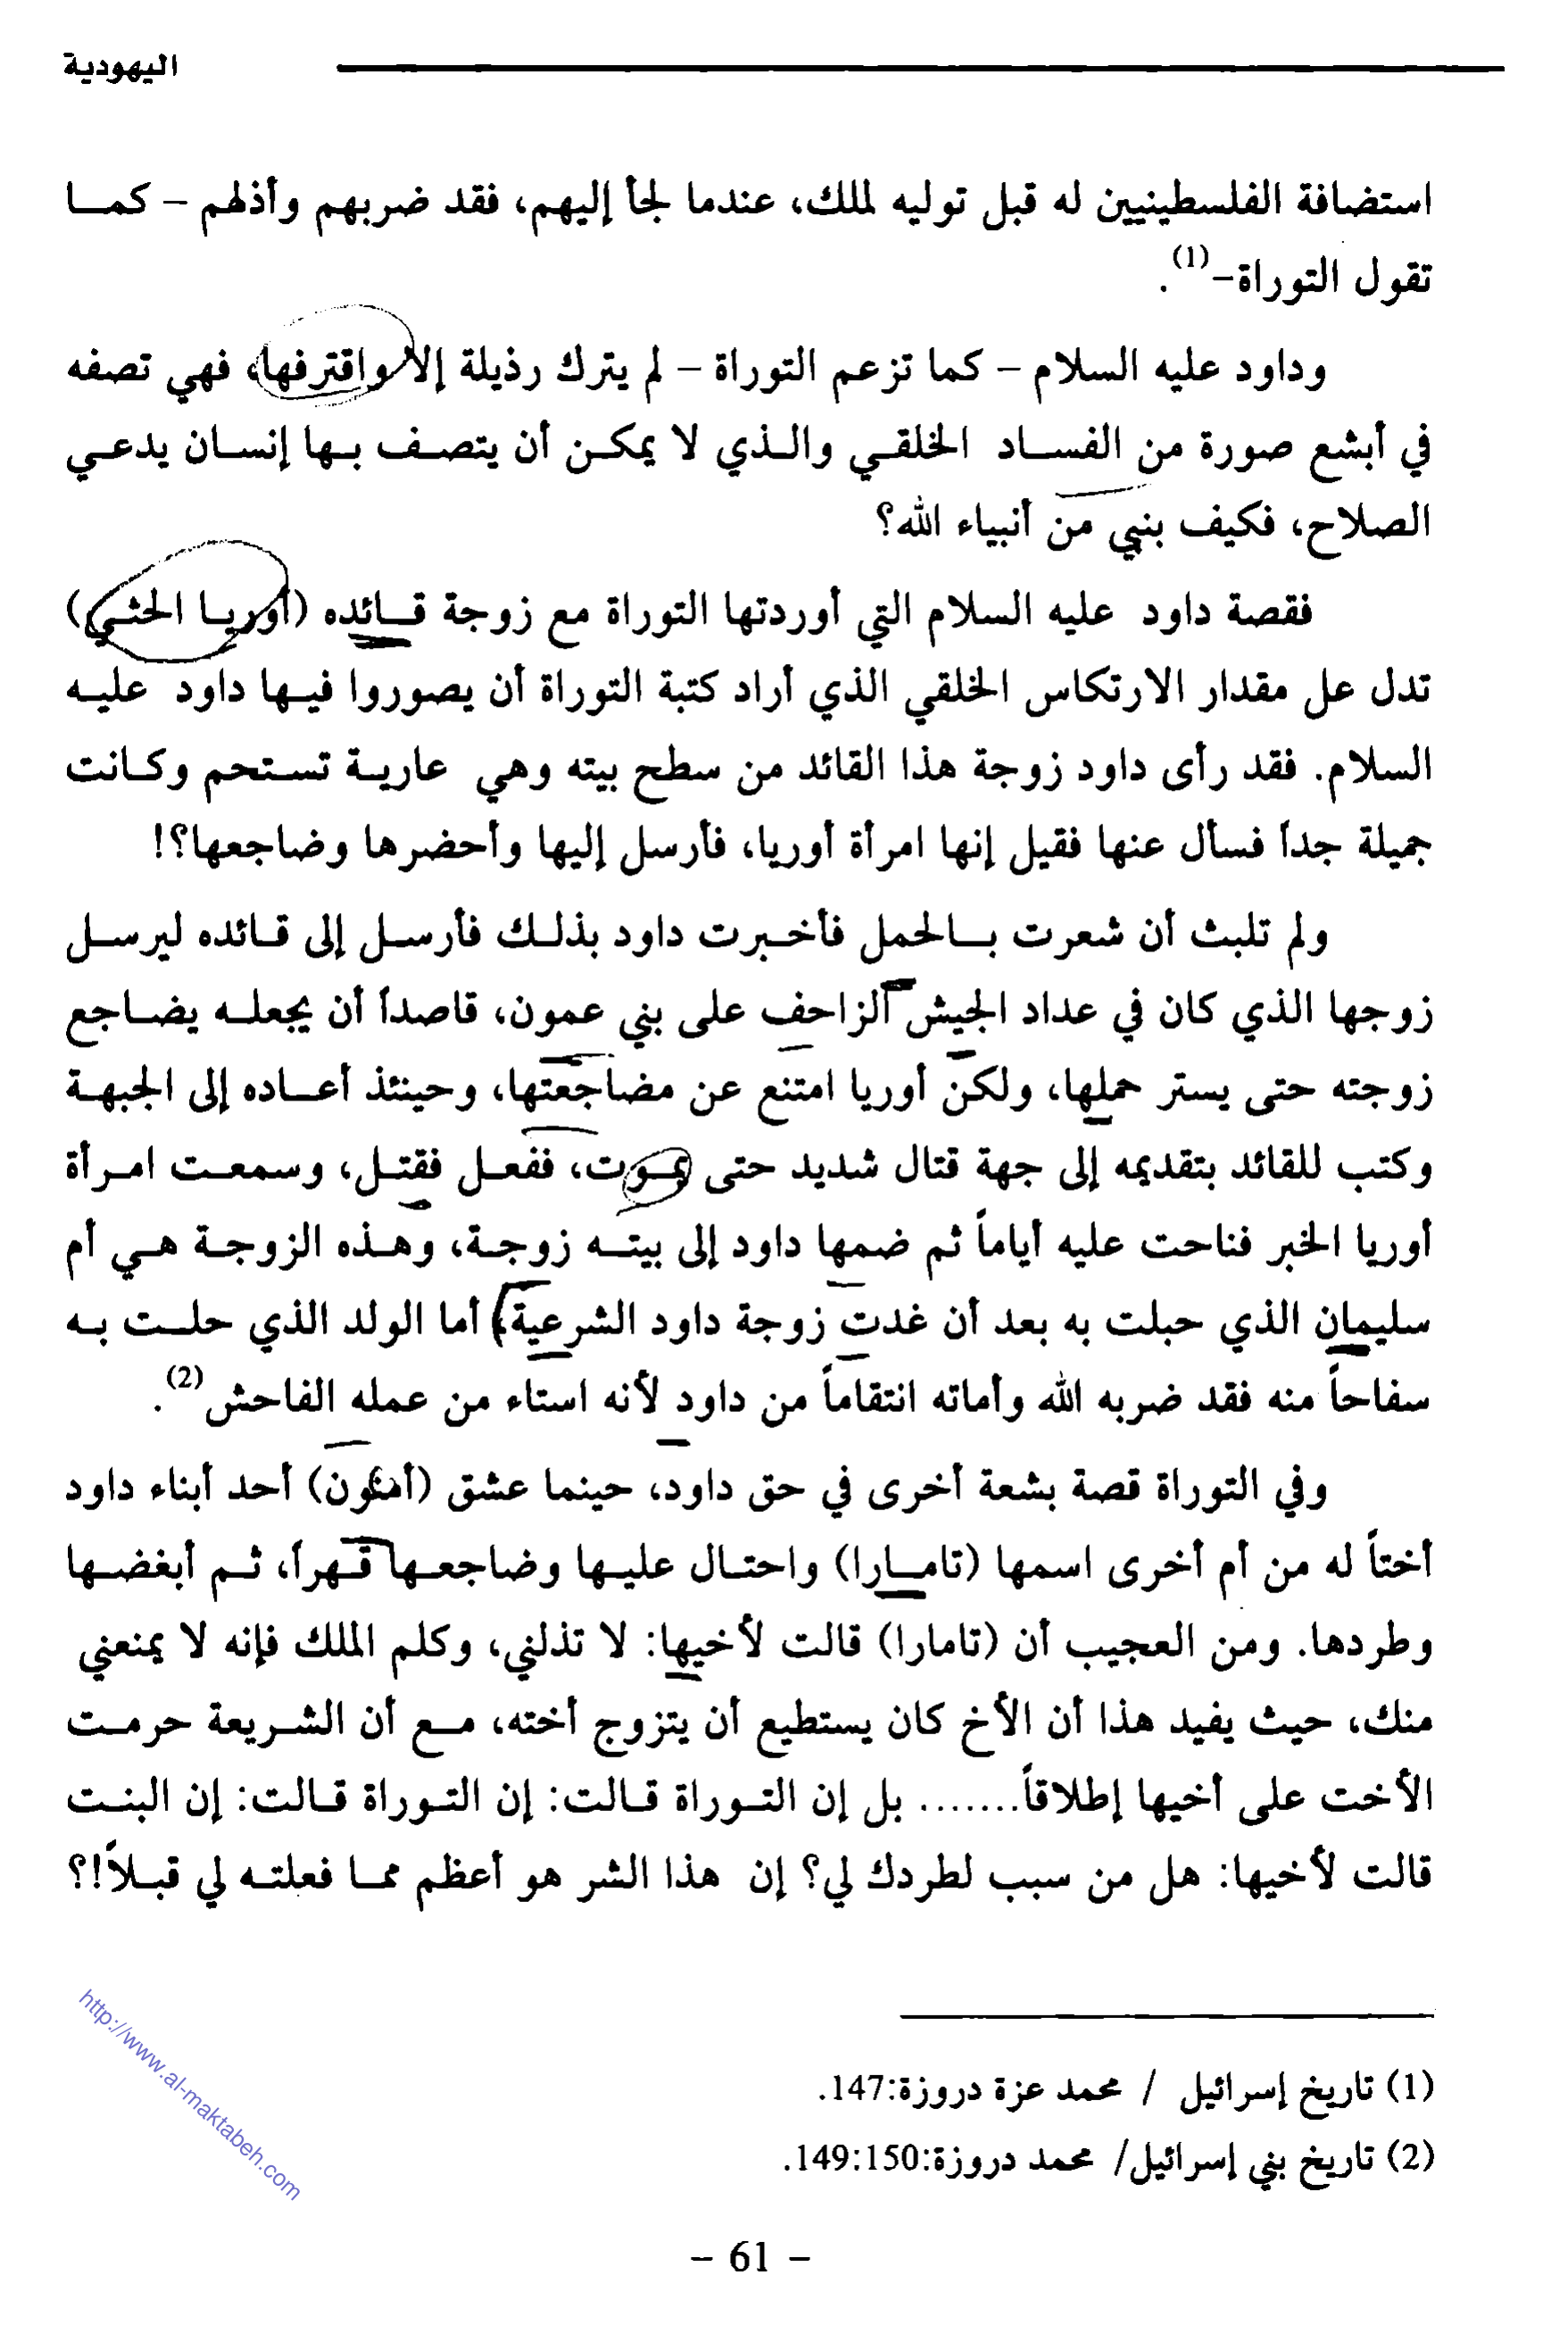 اليهودية
استضافة الفلسطينيين له قبل توليه للملك، عندما لجأ إليهم، فقد ضربهم وأذلهم – كما
تقول التوراة–(1).
وداود عليه السلام – كما تزعم التوراة – لم يترك رذيلة إلا واقترفها، فهي تصفه
في أبشع صورة من الفساد الخلقي والذي لا يمكن أن يتصف بها إنسان يدعي
الصلاح، فكيف بنبي من أنبياء الله؟
فقصة داود عليه السلام التي أوردتها التوراة مع زوجة قائده (أوريا الحثي)
تدل عل مقدار الارتكاس الخلقي الذي أراد كتبة التوراة أن يصوروا فيها داود عليه
السلام. فقد رأى داود زوجة هذا القائد من سطح بيته وهي عارية تستحم وكانت
جميلة جداً فسأل عنها فقيل إنها امرأة أوريا، فأرسل إليها وأحضرها وضاجعها؟!
ولم تلبث أن شعرت بالحمل فأخبرت داود بذلك فأرسل إلى قائده ليرسل
زوجها الذي كان في عداد الجيش الزاحف على بني عمون، قاصداً أن يجعله يضاجع
زوجته حتى يستر حملها، ولكن أوريا امتنع عن مضاجعتها، وحينئذ أعاده إلى الجبهة
وكتب للقائد بتقديمه إلى جهة قتال شديد حتى يموت، ففعل فقتل، وسمعت امرأة
أوريا الخبر فناحت عليه أياماً ثم ضمها داود إلى بيته زوجة، وهذه الزوجة هي أم
سليمان الذي حبلت به بعد أن غدت زوجة داود الشرعية، أما الولد الذي حلت به
سفاحاً منه فقد ضربه الله وأماته انتقاماً من داود لأنه استاء من عمله الفاحش(2).
وفي التوراة قصة بشعة أخرى في حق داود، حينما عشق (أمنون) أحد أبناء داود
أختاً له من أم أخرى اسمها (تامارا) واحتال عليها وضاجعها قهراً، ثم أبغضها
وطردها. ومن العجيب أن (تامارا) قالت لأخيها: لا تذلني، وكلم الملك فإنه لا يمنعني
منك، حيث يفيد هذا أن الأخ كان يستطيع أن يتزوج أخته، مع أن الشريعة حرمت
الأخت على أخيها إطلاقاً....... بل إن التوراة قالت: إن التوراة قالت: إن البنت
قالت لأخيها: هل من سبب لطردك لي؟ إن هذا الشر هو أعظم مما فعلته لي قبلاً!؟
(1) تاريخ إسرائيل / محمد عزة دروزة:147.
(2) تاريخ بني إسرائيل/ محمد دروزة:149:150.
– 61 –
http://www.al-maktabeh.com